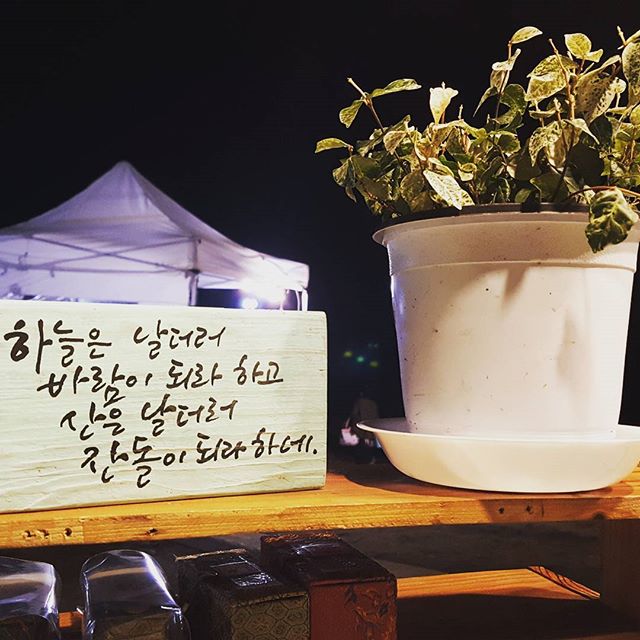 하늘은 날더러
바람이 되라 하고
산은 날더러
잔돌이 되라 하네.